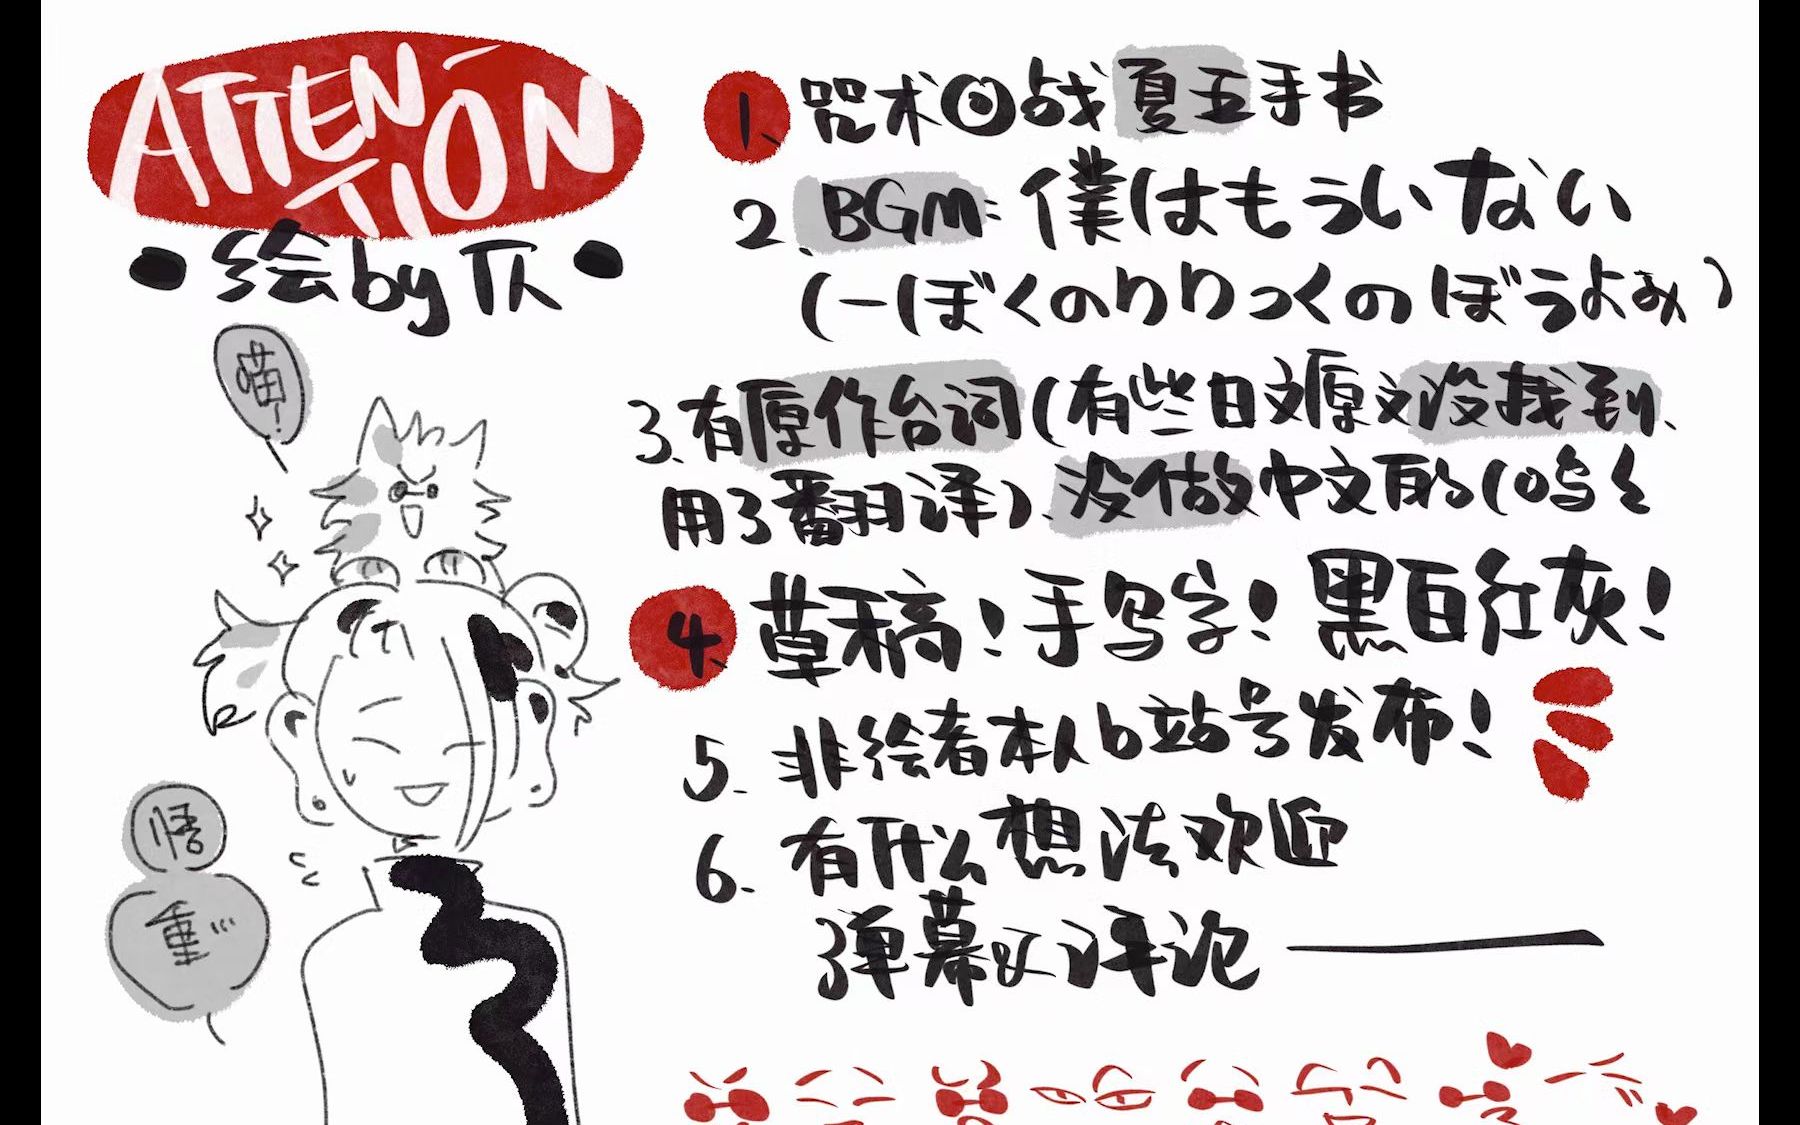 ATTEN-
TION
·绘by仄·
喵!
悟
重...
1、咒术回战夏五手书
2、BGM:僕はもういない
(-ぼくのりりっくのぼうよみ)
3、有原作台词(有些日文原文没找到、
用了翻译)、没做中文的(呜
4、草稿!手写字!黑白红灰!
5.非绘者本人b站号发布!
6.有什么想法欢迎
弹幕以评论——